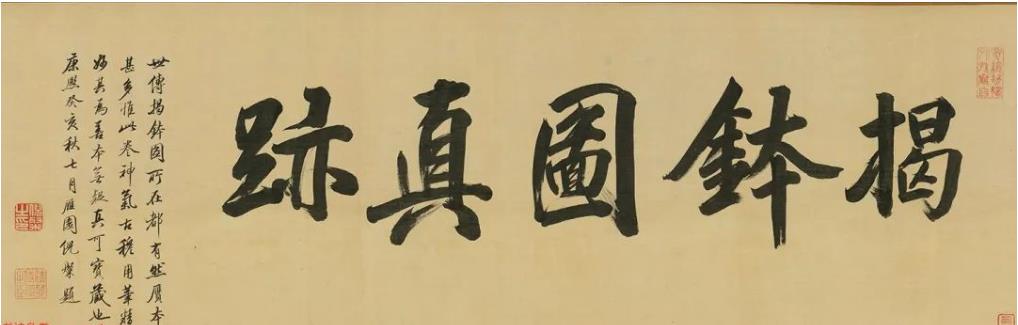 揭鉢圖真跡
世傳揭鉢圖所在都有然贋本
甚多惟此卷神氣古穆用筆精
妙其為善本無疑真可寶藏也
康熙癸亥秋七月雁園倪燦題